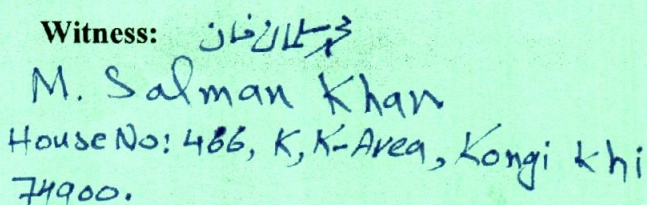 Witness: محمد سلمان خان
M. Salman Khan
House No: 466, K, K-Area, Kongi khi
74900.